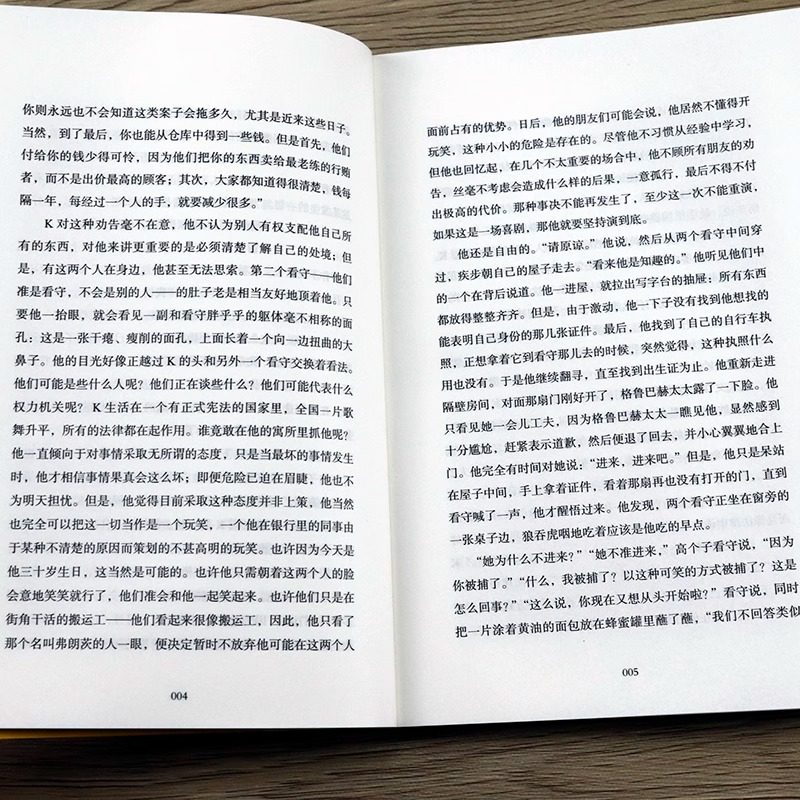 你则永远也不会知道这类案子会拖多久，尤其是近来这些日子。
当然，到了最后，你也能从仓库中得到一些钱。但是首先，他们
付给你的钱少得可怜，因为他们把你的东西卖给最老练的行贿
者，而不是出价最高的顾客；其次，大家都知道得很清楚，钱每
隔一年，每经过一个人的手，就要减少很多。”
K 对这种劝告毫不在意，他不认为别人有权支配他自己所
有的东西，对他来讲更重要的是必须清楚了解自己的处境；但
是，有这两个人在身边，他甚至无法思索。第二个看守——他们
准是看守，不会是别的人——的肚子老是相当友好地顶着他。只
要他一抬眼，就会看见一副和看守胖乎乎的躯体毫不相称的面
孔：这是一张干瘪、瘦削的面孔，上面长着一个向一边扭曲的大
鼻子。他的目光好像正越过 K 的头和另外一个看守交换着看法。
他们可能是些什么人呢？他们正在谈些什么？他们可能代表什么
权力机关呢？K 生活在一个有正式宪法的国家里，全国一片歌
舞升平，所有的法律都在起作用。谁竟敢在他的寓所里抓他呢？
他一直倾向于对事情采取无所谓的态度，只是当最坏的事情发生
时，他才相信事情果真会这么坏；即便危险已迫在眉睫，他也不
为明天担忧。但是，他觉得目前采取这种态度并非上策，他当然
也完全可以把这一切当作是一个玩笑，一个他在银行里的同事由
于某种不清楚的原因而策划的不甚高明的玩笑。也许因为今天是
他三十岁生日，这当然是可能的。也许他只需朝着这两个人的脸
会意地笑笑就行了，他们准会和他一起笑起来。也许他们只是在
街角干活的搬运工——他们看起来很像搬运工，因此，他只看了
那个名叫弗朗茨的人一眼，便决定暂时不放弃他可能在这两个人
004
面前占有的优势。日后，他的朋友们可能会说，他居然不懂得开
玩笑，这种小小的危险是存在的。尽管他不习惯从经验中学习，
但他也回忆起，在几个不太重要的场合中，他不顾所有朋友的劝
告，丝毫不考虑会造成什么样的后果，一意孤行，最后不得不付
出极高的代价。那种事决不能再发生了，至少这一次不能重演，
如果这是一场喜剧，那他就要坚持演到底。
他还是自由的。“请原谅。”他说，然后从两个看守中间穿
过，疾步朝自己的屋子走去。“看来他是知趣的。”他听见他们中
的一个在背后说道。他一进屋，就拉出写字台的抽屉：所有东西
都放得整整齐齐。但是，由于激动，他一下子没有找到他想找的
能表明自己身份的那几张证件。最后，他找到了自己的自行车执
照，正想拿着它到看守那儿去的时候，突然觉得，这种执照什么
用也没有。于是他继续翻寻，直至找到出生证为止。他重新走进
隔壁房间，对面那扇门刚好开了，格鲁巴赫太太露了一下脸。他
只看见她一会儿工夫，因为格鲁巴赫太太一瞧见他，显然感到
十分尴尬，赶紧表示道歉，然后便退了回去，并小心翼翼地合上
门。他完全有时间对她说：“进来，进来吧。”但是，他只是呆站
在屋子中间，手上拿着证件，看着那扇再也没有打开的门，直到
看守喊了一声，他才醒悟过来。他发现，两个看守正坐在窗旁的
一张桌子边，狼吞虎咽地吃着应该是他吃的早点。
“她为什么不进来？”“她不准进来，”高个子看守说，“因为
你被捕了。”“什么，我被捕了？以这种可笑的方式被捕了？这是
怎么回事？”“这么说，你现在又想从头开始啦？”看守说，同时
把一片涂着黄油的面包放在蜂蜜罐里蘸了蘸，“我们不回答类似
005